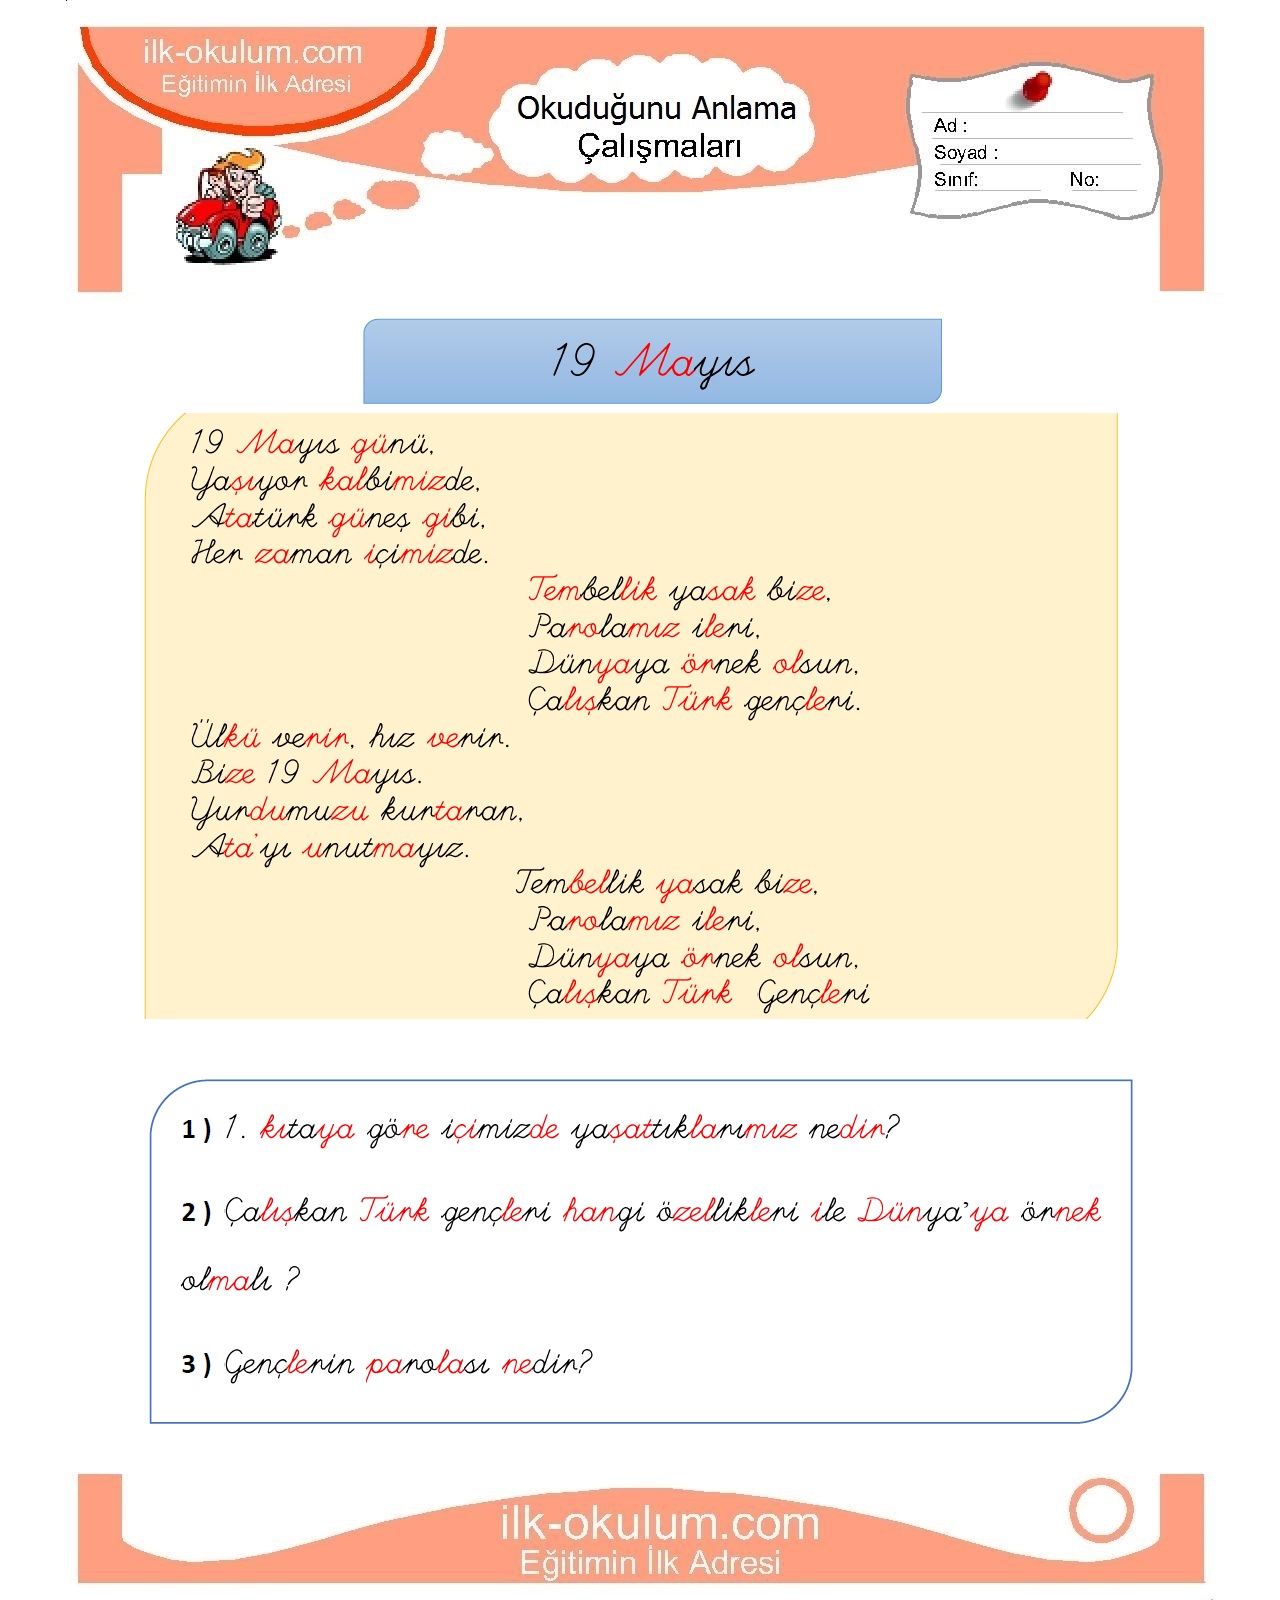 ilk-okulum.com
Eğitimin İlk Adresi
Okuduğunu Anlama
Çalışmaları
Ad :
Soyad :
Sınıf: No:
19 Mayıs
19 Mayıs günü,
Yaşıyor kalbimizde,
Atatürk güneş gibi,
Her zaman içimizde.
Tembellik yasak bize,
Parolamız ileri,
Dünyaya örnek olsun,
Çalışkan Türk gençleri.
Ülkü verin, hız verin.
Bize 19 Mayıs.
Yurdumuzu kurtaran,
Ata'yı unutmayız.
Tembellik yasak bize,
Parolamız ileri,
Dünyaya örnek olsun,
Çalışkan Türk Gençleri
1 ) 1. kıtaya göre içimizde yaşattıklarımız nedir?
2 ) Çalışkan Türk gençleri hangi özellikleri ile Dünya'ya örnek
olmalı ?
3 ) Gençlerin parolası nedir?
ilk-okulum.com
Eğitimin İlk Adresi